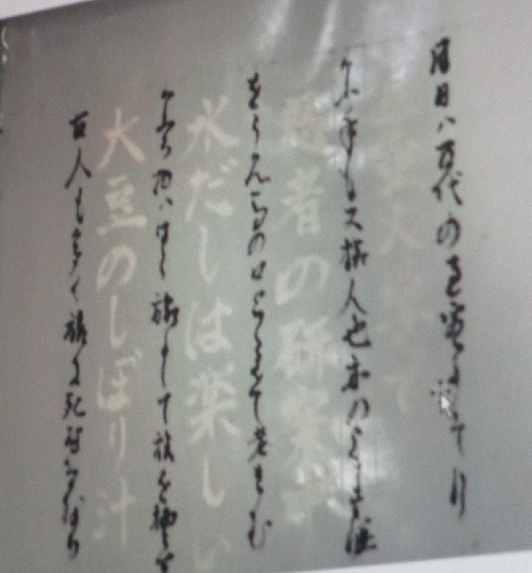 月日ハ百代の過客にして行
かふ年も又旅人也舟の上に生涯
者の研
をうかへ馬の口とらえて老をむ
水だしは楽しい
かふる物ハ日々旅にして旅を栖とす
大豆のしぼり汁
古人も多く旅に死せるあり